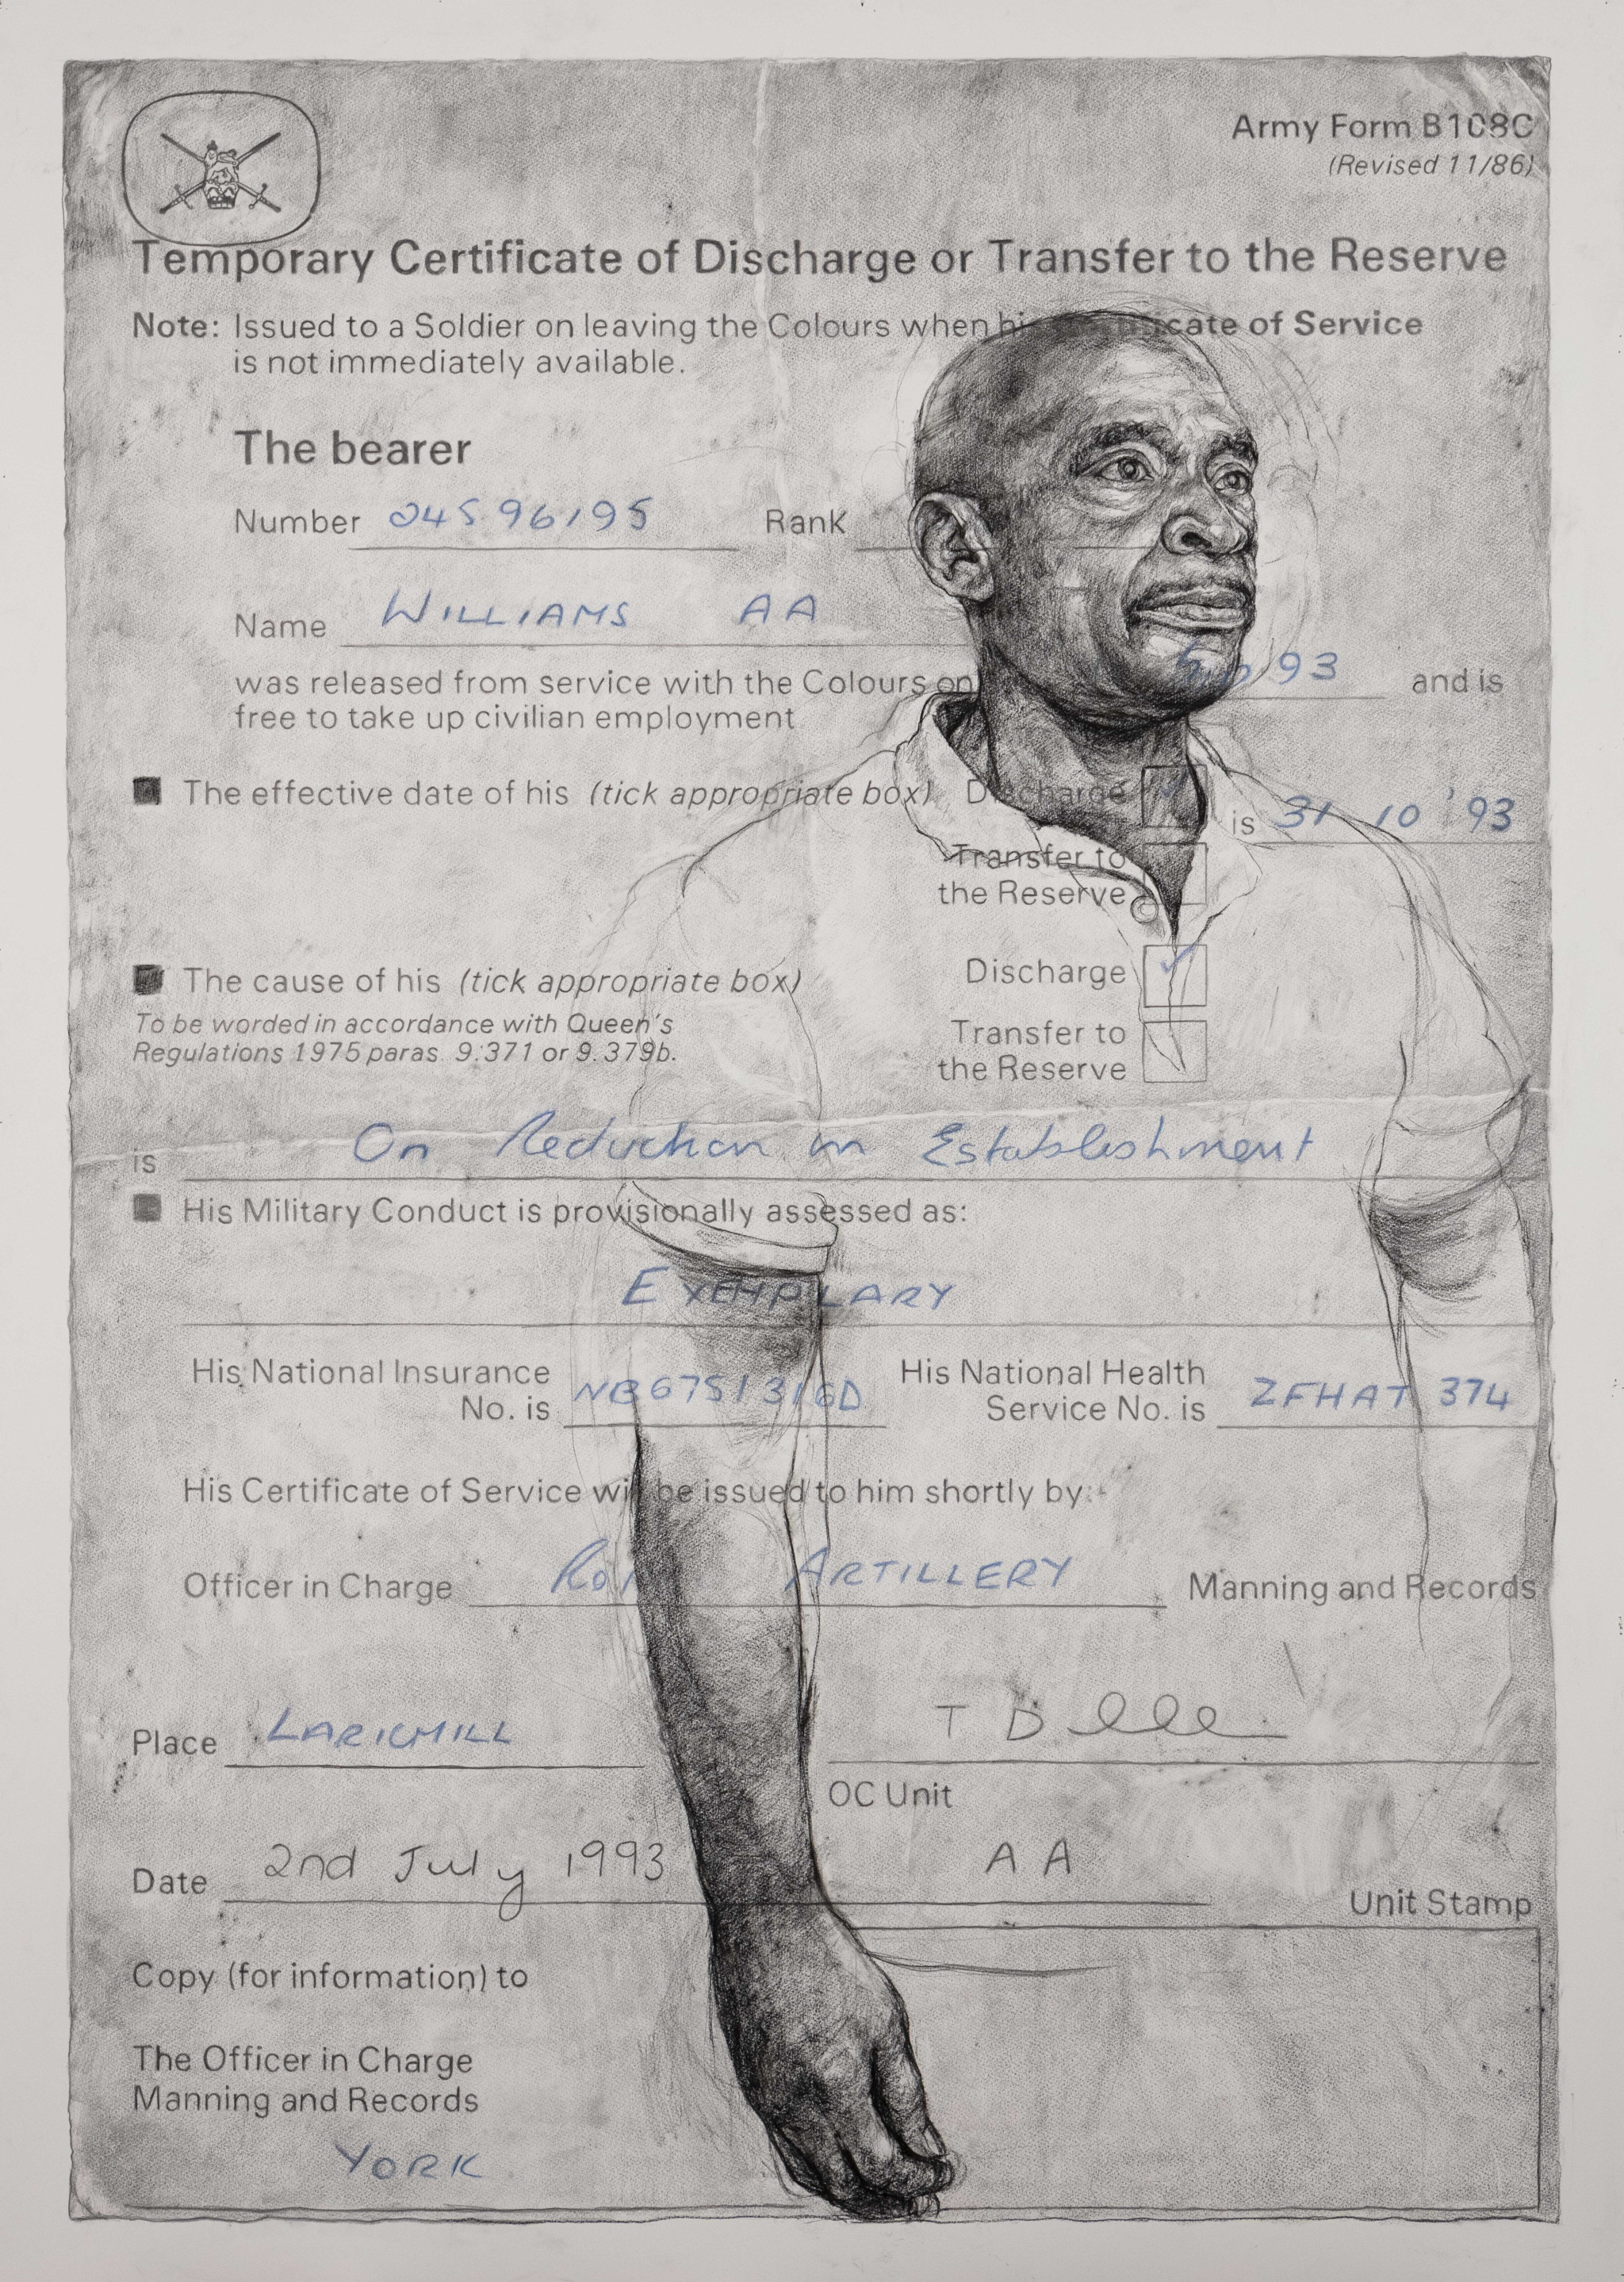 Army Form B108C
(Revised 11/86)
Temporary Certificate of Discharge or Transfer to the Reserve
Note: Issued to a Soldier on leaving the Colours when of Service
is not immediately available.
The bearer
Number 24596195 Rank
Name WILLIAMS AA
was released from service with the Colours on 93 and is
free to take up civilian employment
The effective date of his (tick appropriate box) Discharge ✓ is 31 10 '93
Transfer to
the Reserve
The cause of his (tick appropriate box) Discharge ✓
To be worded in accordance with Queen's
Regulations 1975 paras. 9.371 or 9.379b.
Transfer to
the Reserve
is On Reduction in Establishment
His Military Conduct is provisionally assessed as:
EXEMPLARY
His National Insurance
No. is NB675131GD
His National Health
Service No. is ZFHAT 374
His Certificate of Service will be issued to him shortly by:-
Officer in Charge ARTILLERY Manning and Records
Place LARKHILL
OC Unit
Date 2nd July 1993 AA
Unit Stamp
Copy (for information) to
The Officer in Charge
Manning and Records
YORK